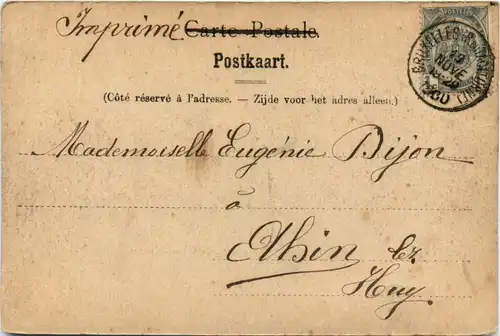 Imprimé Carte Postale.
Postkaart.
(Côté réservé à l'adresse. — Zijde voor het adres alleen.)
Mademoiselle Eugénie Dijon
à
Ahin lez
Huy